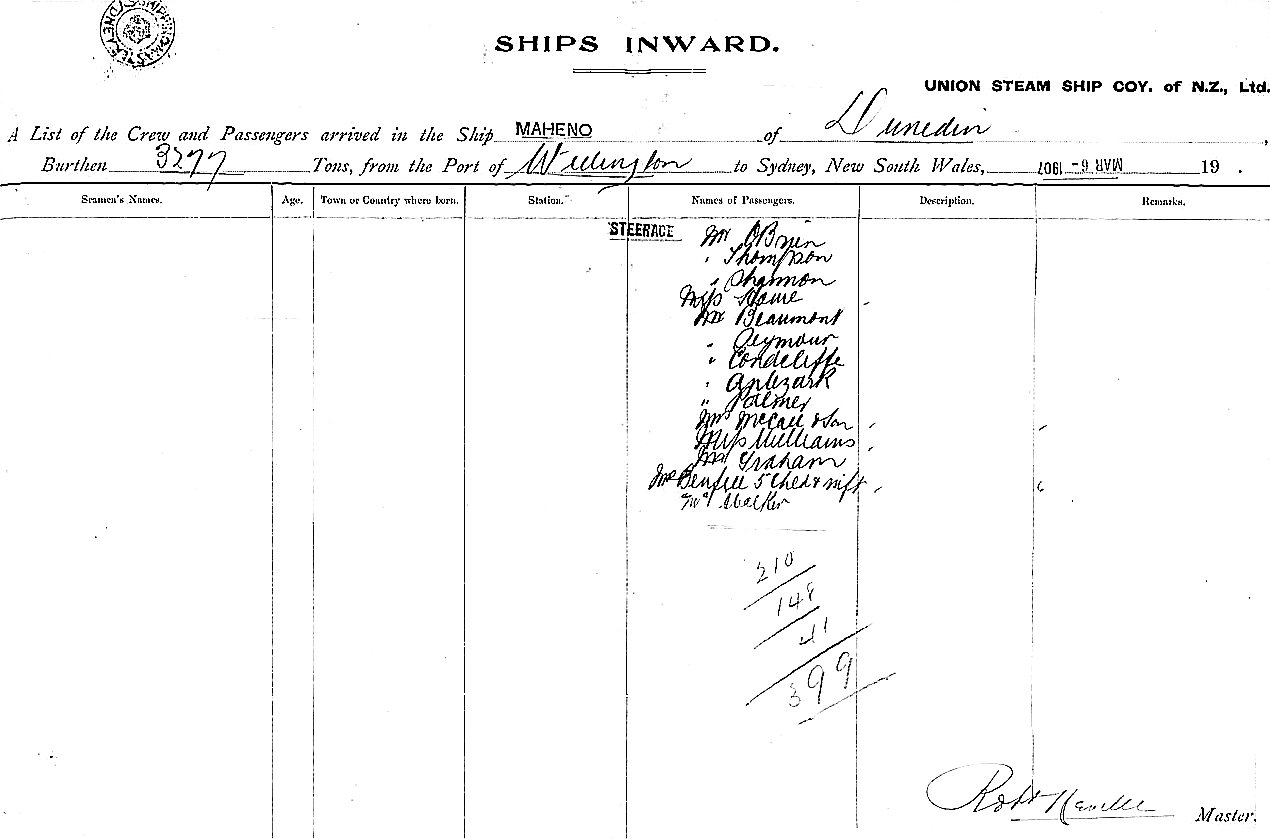 SHIPS INWARD.
UNION STEAM SHIP COY. of N.Z., Ltd.
A List of the Crew and Passengers arrived in the Ship MAHENO of Dunedin,
Burthen 3277 Tons, from the Port of Wellington to Sydney, New South Wales, MAR 9- 1907 19 .
Seamen's Names. Age. Town or Country where born. Station. Names of Passengers. Description. Remarks.
STEERAGE Mr O'Brien
" Thompson
" Shannon
Miss Hame
Mr Beaumont
" Seymour
" Condeliffe
" Aplezark
" Palmer
Mrs McCall & Son
Miss Williams
Mr Graham
5 Chld &
Walker
210
148
41
399
Robt Neville Master.